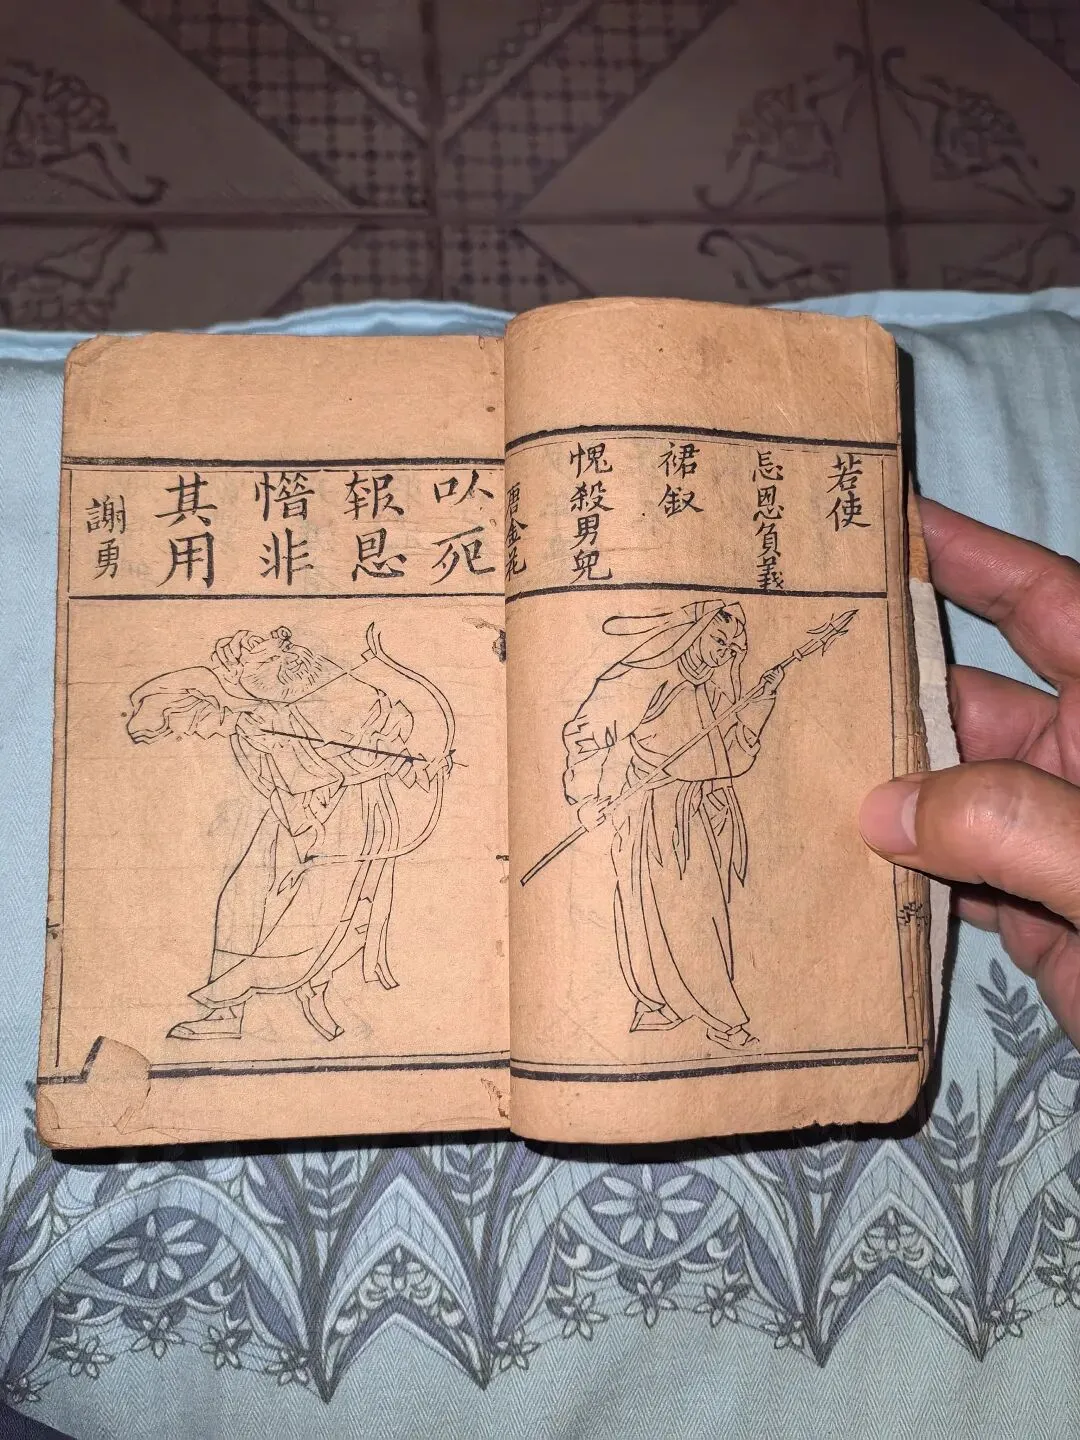 若使
忘恩負義
裙釵
愧殺男兒
唐金花
㕥死
報恩
惜非
其用
謝勇